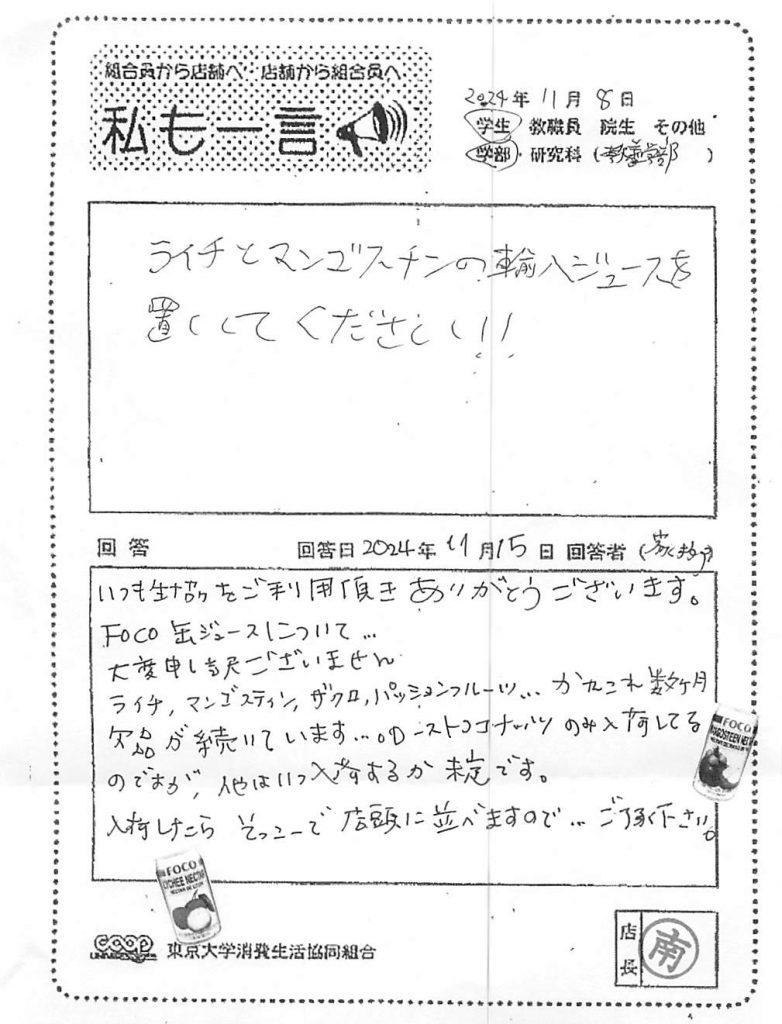 組合員から店舗へ 店舗から組合員へ
私も一言
2024年 11月 8日
学生 教職員 院生 その他
学部・研究科 (教養学部)
ライチとマンゴスチンの輸入ジュースを
置いてください!!
回答 回答日 2024年 11月 15日 回答者
いつも生協をご利用頂きありがとうございます。
FOCO 缶ジュースについて...
大変申し訳ございません
ライチ, マンゴスティン, ザクロ, パッションフルーツ... かれこれ数ヶ月
欠品が続いています...。ローストココナッツのみ入荷してる
のですが, 他はいつ入荷するか未定です。
入荷したら そっこーで 店頭に並べますので... ご了承下さい。
FOCO
MANGOSTEEN NECTAR
FOCO
LYCHEE NECTAR
coop
東京大学消費生活協同組合
店長
南